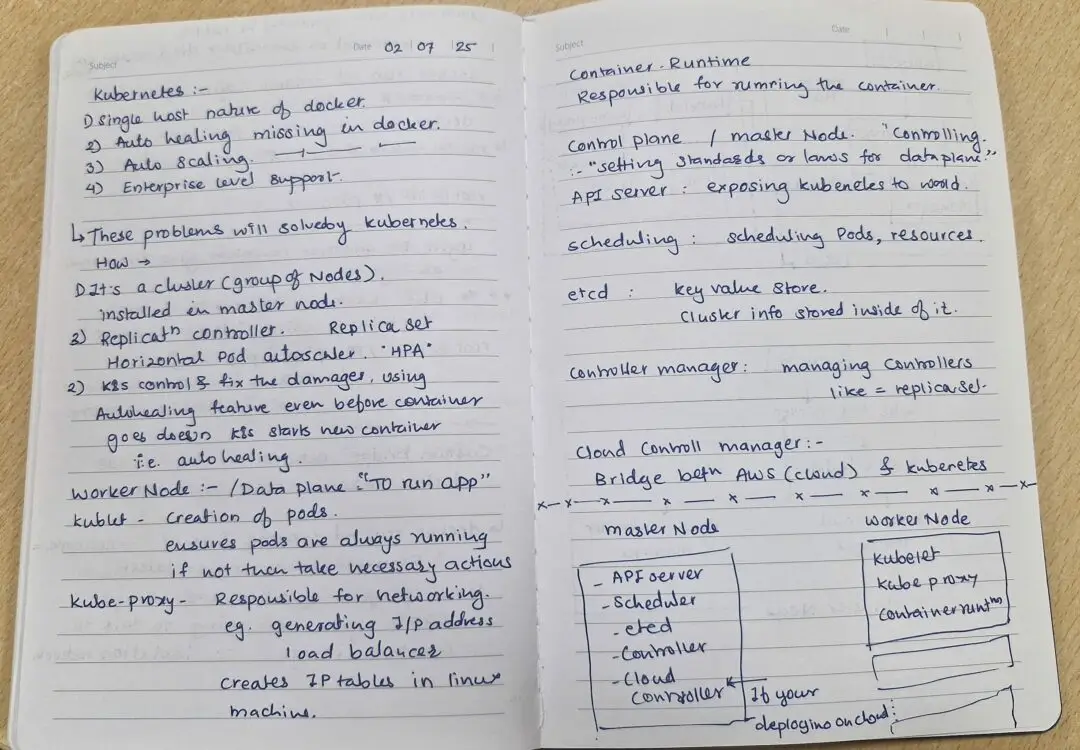 Subject
Date 02 07 25
Kubernetes :-
1) single host nature of docker.
2) Auto healing missing in docker.
3) Auto scaling.
4) Enterprise level support.
↳ These problems will solvedby kubernetes.
How →
1) It's a cluster (group of Nodes).
installed in master node.
3) Replicatn controller. Replica set
Horizontal pod autoscaler. "HPA"
2) K8s control & fix the damages, using
Autohealing feature even before container
goes doesn k8s starts new container
i.e. auto healing.
Worker Node :- /Data plane :- "To run app"
kublet - creation of pods.
ensures pods are always running
if not then take necessary actions
kube-proxy - Responsible for networking.
eg. generating I/P address
load balancer
creates IP tables in linux
machine.
Subject
Date
Container-Runtime
Responsible for running the container.
Control plane / master Node. "Controlling.
:- "setting standards or laws for dataplane"
API server : exposing kubenetes to world.
scheduling : scheduling Pods, resources.
etcd : key value store.
Cluster info stored inside of it.
Controller manager : managing Controllers
like = replica set.
Cloud Controll manager :-
Bridge betn AWS (cloud) & kubenetes
master Node
- API server
- Scheduler
- etcd
- Controller
- Cloud
Controller ← If your
deploging on cloud :
Worker Node
Kubelet
Kube proxy
Container runtm